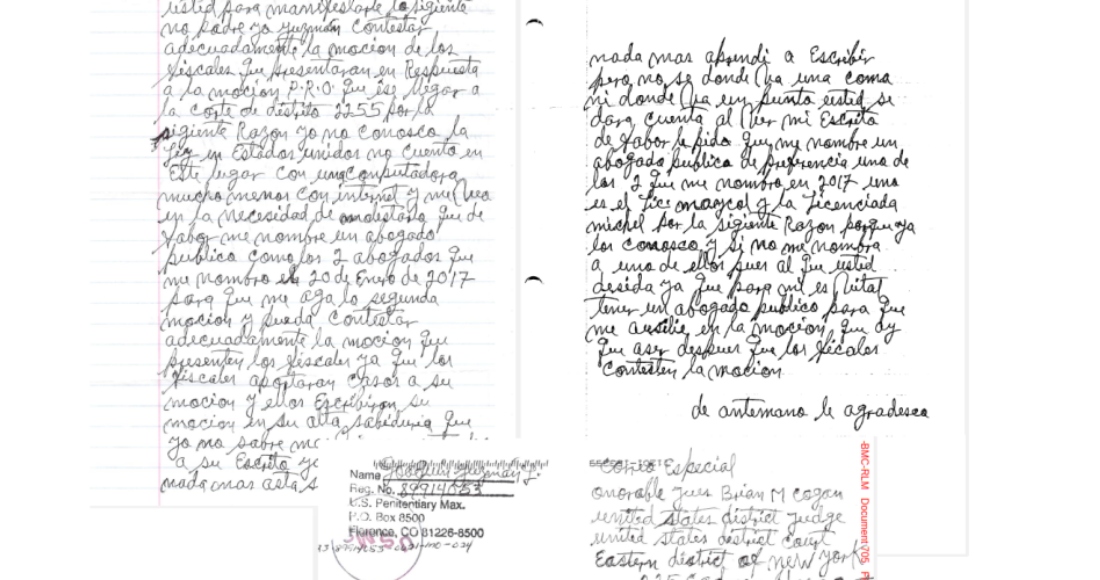 usted para manifestarle lo sigiente
no padre yo guzmán contestar
adecuadamente la mocion de los
fiscales que presentaran en Respuesta
a la mocion P.R.O. que ise llegar a
la corte de distrito 2255 por la
sigiente Razon yo no conosco la
Ley en Estados unidos no cuento en
Este lugar con una computadora
mucho menos con internet y me vea
en la necesidad de molestarlo que de
fabor me nombre un abogado
publico como los 2 abogados que
me nombro el 20 de Enero de 2017
para que me aga lo segunda
mocion y pueda contestar
adecuadamente la mocion que
presenten los fiscales ya que los
fiscales aportaran casos a su
mocion y ellos Escribiron su
mocion en su alta sabiduria que
yo no sabre
a su Escrito
nada mas asta
nada mas aprendi a Escribir
pero no se donde va una coma
ni donde va un punto usted se
dara cuenta al ver mi Escrito
de fabor le pido que me nombre un
abogado publico de preferencia uno de
los 2 que me nombro en 2017 uno
es el Lic maycol y la Licenciada
michel por la sigiente Razon porque ya
los conosco y si no me nombra
a uno de ellos pues al que usted
desida ya que para mi es vital
tener un abogado publico para que
me ausilie en la mocion que ay
que aser despues que los ficales
contesten la mocion
de antemano le agradesco
Name Joaquin Guzman L.
Reg. No. 89914053
U.S. Penitentiary Max.
P.O. Box 8500
Florence, CO 81226-8500
Especial
onorable Jues Brian M cogan
united states district judge
united states district court
Eastern district of new york
-BMC-RLM Document 705